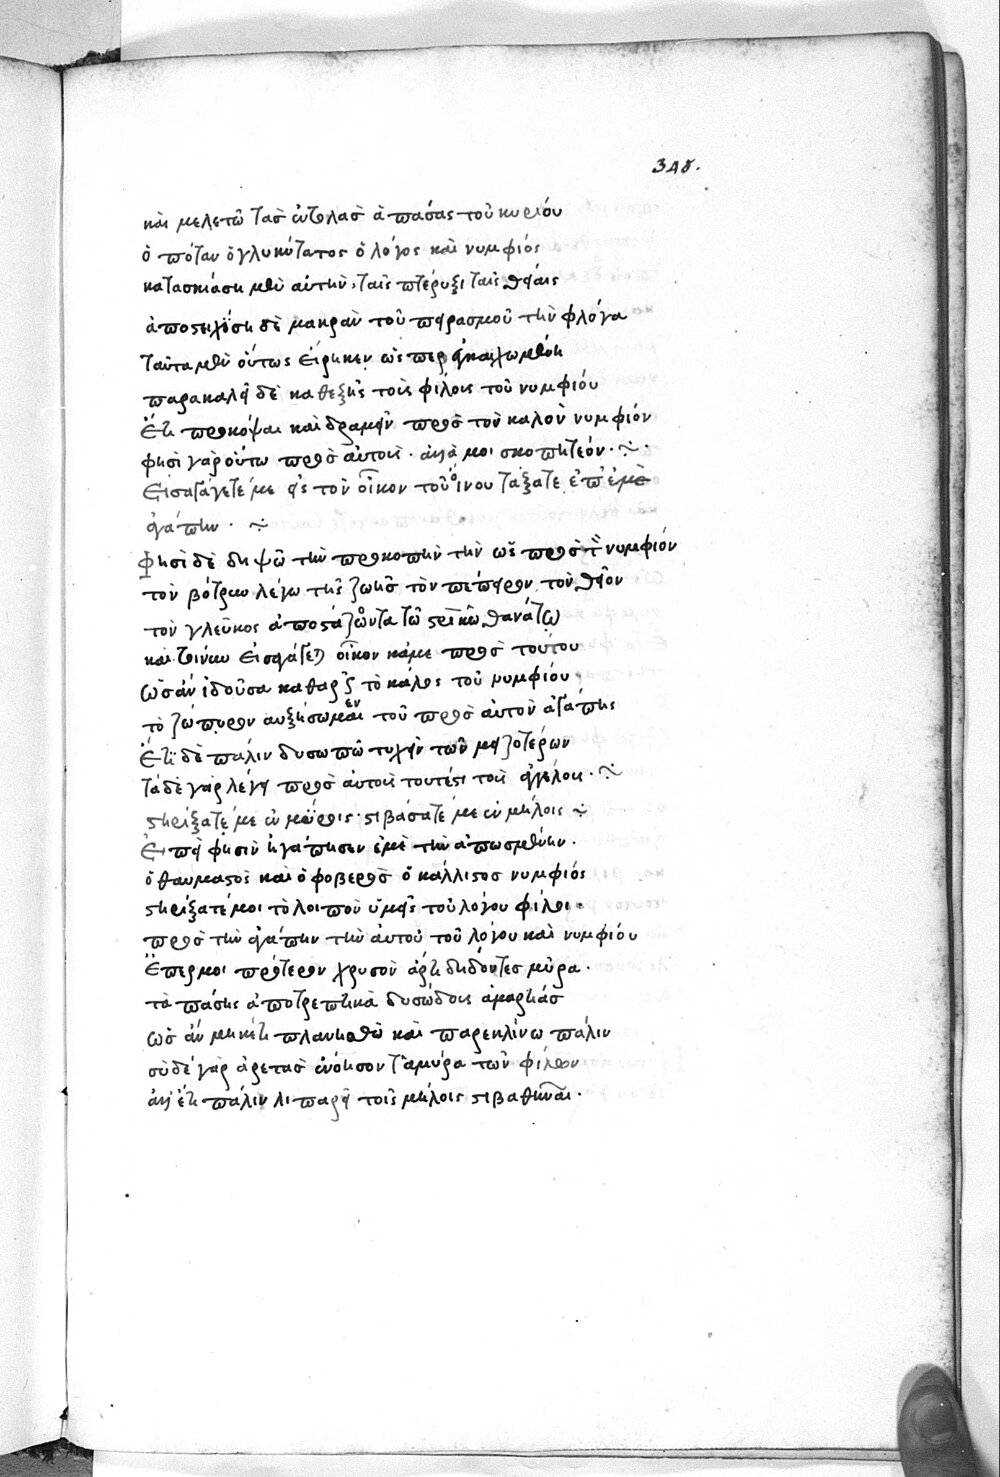 348.
καὶ μελετῶ τὰς ἐντολὰς ἁπάσας τοῦ κυρίου
ὁ πόταν ὁ γλυκύτατος ὁ λόγος καὶ νυμφίος
κατασκιάση μὲν αὐτὴν, ταῖς πτέρυξι ταῖς θείαις
ἀποτειχίση δὲ μακρὰν τοῦ πειρασμοῦ τὴν φλόγα
ταῦτα μὲν οὕτως εἴρηκεν ὥσπερ ἐγκαυχωμένη
παρακαλεῖ δὲ καθεξῆς τοῖς φίλοις τοῦ νυμφίου
Ἔτι προκόψαι καὶ δραμεῖν πρὸς τὸν καλὸν νυμφίον
φησὶ γὰρ οὕτω πρὸς αὐτούς· ἀλλά μοι σκοπητέον·
Εἰσαγάγετέ με εἰς τὸν οἶκον τοῦ οἴνου τάξατε ἐπ' ἐμὲ
ἀγάπην·
Φησὶ δὲ διψῶ τὴν προκοπὴν τὴν ὡς πρὸς τὸν νυμφίον
τὸν βότρυν λέγω τῆς ζωῆς τὸν πέπειρον τὸν θεῖον
τὸν γλεῦκος ἀποστάζοντα τῶ στρικῶ θανάτω
καὶ γίνου εἰσαγάγετε οἶκον κἀμὲ πρὸς τούτου
ὡς ἂν ἰδοῦσα καθαρῶς τὸ κάλλος τοῦ νυμφίου
τὸ ζώπυρον αὐξήσωμεν τοῦ πρὸς αὐτὸν ἀγάπης
Ἔτι δὲ πάλιν δυσωπῶ τυχεῖν τῶν μειζοτέρων
τάδε γὰρ λέγει πρὸς αὐτοὺς τουτέστι τοῖς ἀγγέλοις·
στηρίξατέ με ἐν μύροις· στιβάσατέ με ἐν μήλοις
Ἐπεὶ φησὶν ἠγάπησεν ἐμὲ τὴν ἀπωσμένην·
ὁ θαυμαστὸς καὶ ὁ φοβερὸς ὁ κάλλιστος νυμφίος
στηρίξατέ μοι τὸ λοιπὸν ὑμεῖς τοῦ λόγου φίλοι·
πρὸς τὴν ἀγάπην τὴν αὐτοῦ τοῦ λόγου καὶ νυμφίου
Ἔπερ μοι πρότερον χρυσὸν ἄρτι διδόντες μύρα·
τὰ πάσης ἀποτρεπτικὰ δυσώδους ἁμαρτίας
ὡς ἂν μηκέτι πλανηθῶ καὶ παρεκκλίνω πάλιν
σὺ δέ γὰρ ἀρετὰς ἐνόησον τὰ μύρα τῶν φίλων
ἀλλ' ἔτι πάλιν λιπαρεῖ τοῖς μήλοις στιβαθῆναι·